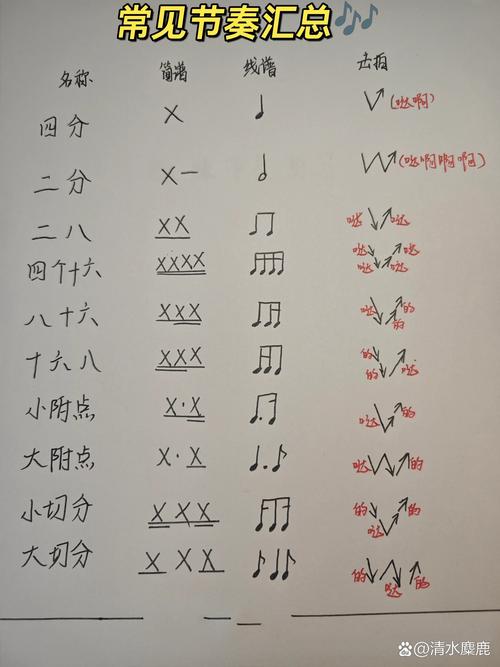 常见节奏汇总
名称 简谱 线谱 击拍
四分 X (哒啊)
二分 X— (哒啊啊啊)
二八 XX 哒 哒
四个十六 XXXX 哒 哒 哒 哒
八十六 XXX 哒 的 的
十六八 XXX 的 的 哒
小附点 X·X 哒 的
大附点 X·X 哒 的
小切分 XXX 的 哒 的
大切分 X XX 的 哒 的
@清水麋鹿